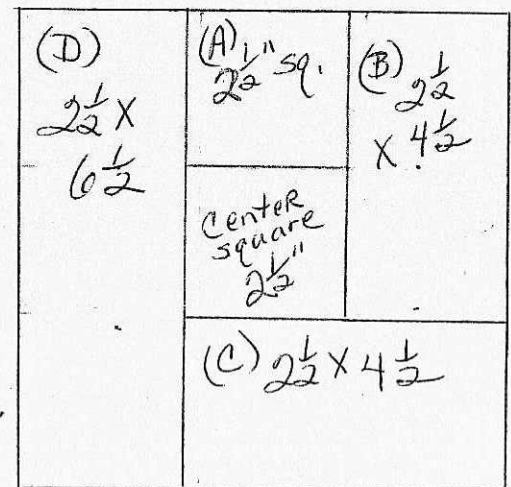 (D)
2 1/2 X
6 1/2
(A)
2 1/2" sq.
(B)
2 1/2
x 4 1/2
Center
square
2 1/2"
(C) 2 1/2 x 4 1/2